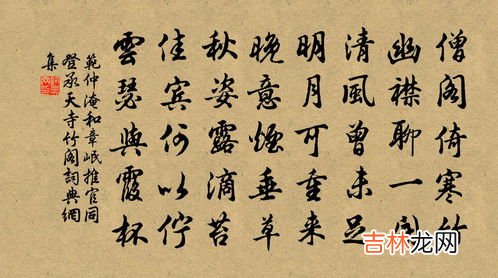 僧阁倚寒竹
幽襟聊一开
清風曾未足
明月可重来
晚意煙垂草
秋姿露滴苔
佳宾何以伫
雲瑟與霞杯
範仲淹和章岷推官同
登承天寺竹阁詞典網
集
吉林龙网